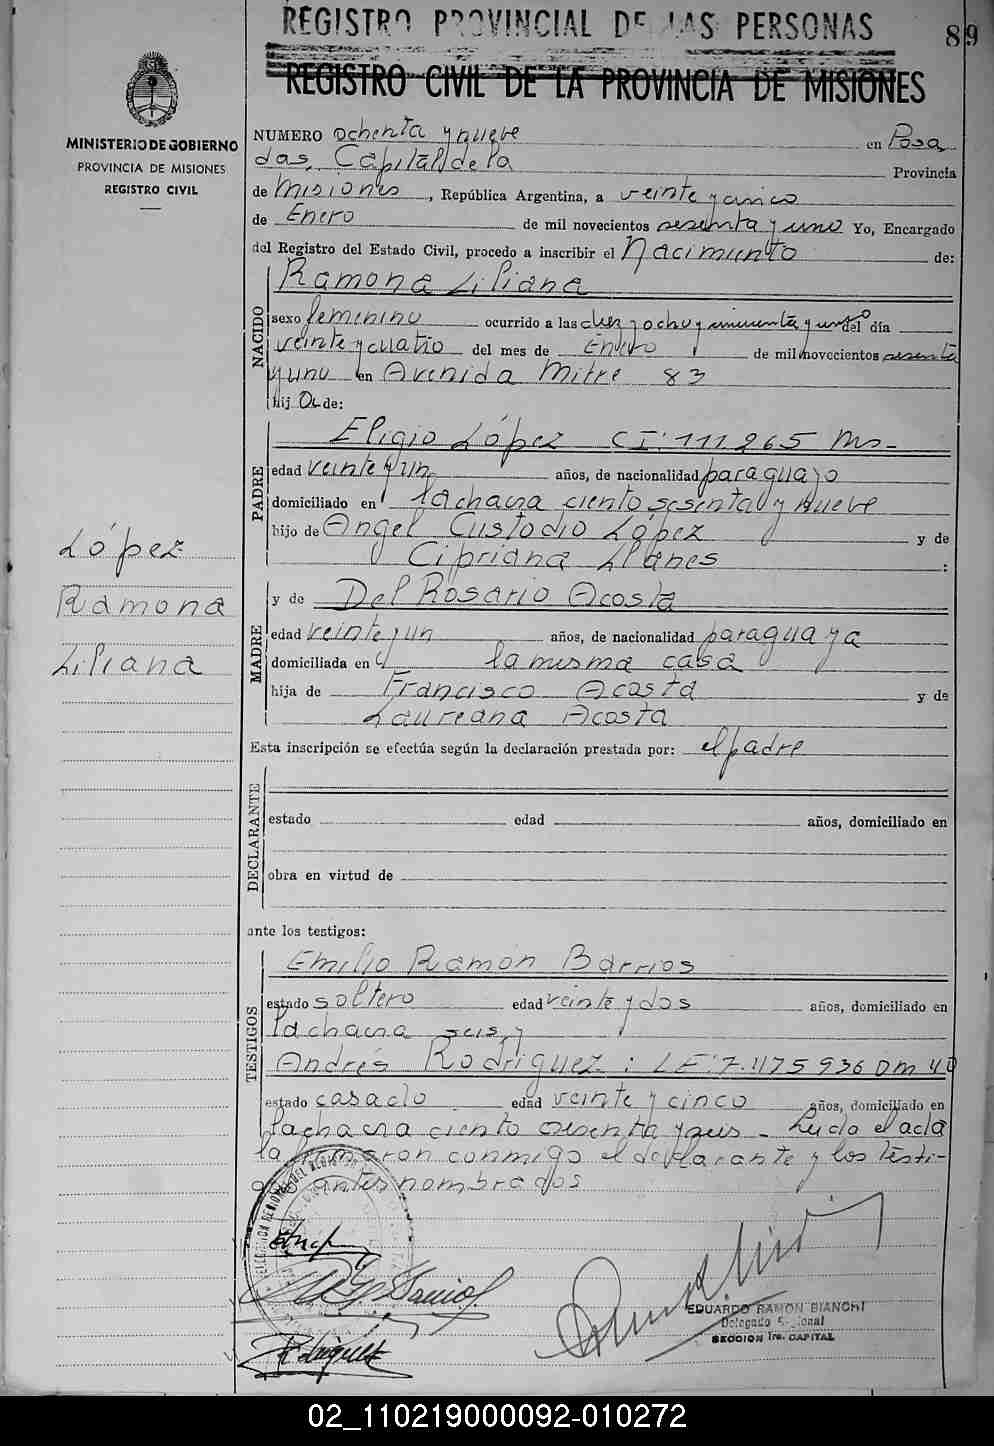 REGISTRO PROVINCIAL DE LAS PERSONAS
89
REGISTRO CIVIL DE LA PROVINCIA DE MISIONES
MINISTERIO DE GOBIERNO
PROVINCIA DE MISIONES
REGISTRO CIVIL
NUMERO ochenta y nueve en Posa
das, Capital de la Provincia
de Misiones, República Argentina, a veinte y cinco
de Enero de mil novecientos sesenta y uno Yo, Encargado
del Registro del Estado Civil, procedo a inscribir el Nacimiento de:
NACIDO
Ramona Liliana
sexo femenino ocurrido a las diez y ocho y cincuenta y uno del día
veinte y cuatro del mes de Enero de mil novecientos sesenta
y uno en Avenida Mitre 83
hij a de:
PADRE
Eligio López CI: 111265 Ms-
edad veinte y un años, de nacionalidad paraguayo
domiciliado en la chacra ciento sesenta y nueve
hijo de Angel Custodio López y de
Cipriana Llanes :
López
Ramona
Liliana
MADRE
y de Del Rosario Acosta
edad veinte y un años, de nacionalidad paraguaya
domiciliada en la misma casa
hija de Francisco Acosta y de
Laureana Acosta
Esta inscripción se efectúa según la declaración prestada por: el padre
DECLARANTE
estado edad años, domiciliado en
obra en virtud de
ante los testigos:
TESTIGOS
Emilio Ramón Barrios
estado soltero edad veinte y dos años, domiciliado en
la chacra seis y
Andrés Rodriguez: LE: 7.475936 DM 40
estado casado edad veinte y cinco años, domiciliado en
la chacra ciento sesenta y seis - Leida el acta
la firmaron conmigo el declarante y los testi-
gos antes nombrados
Rodriguez
EDUARDO RAMON BIANCHI
Delegado Seccional
SECCION 1ra. CAPITAL
02_110219000092-010272